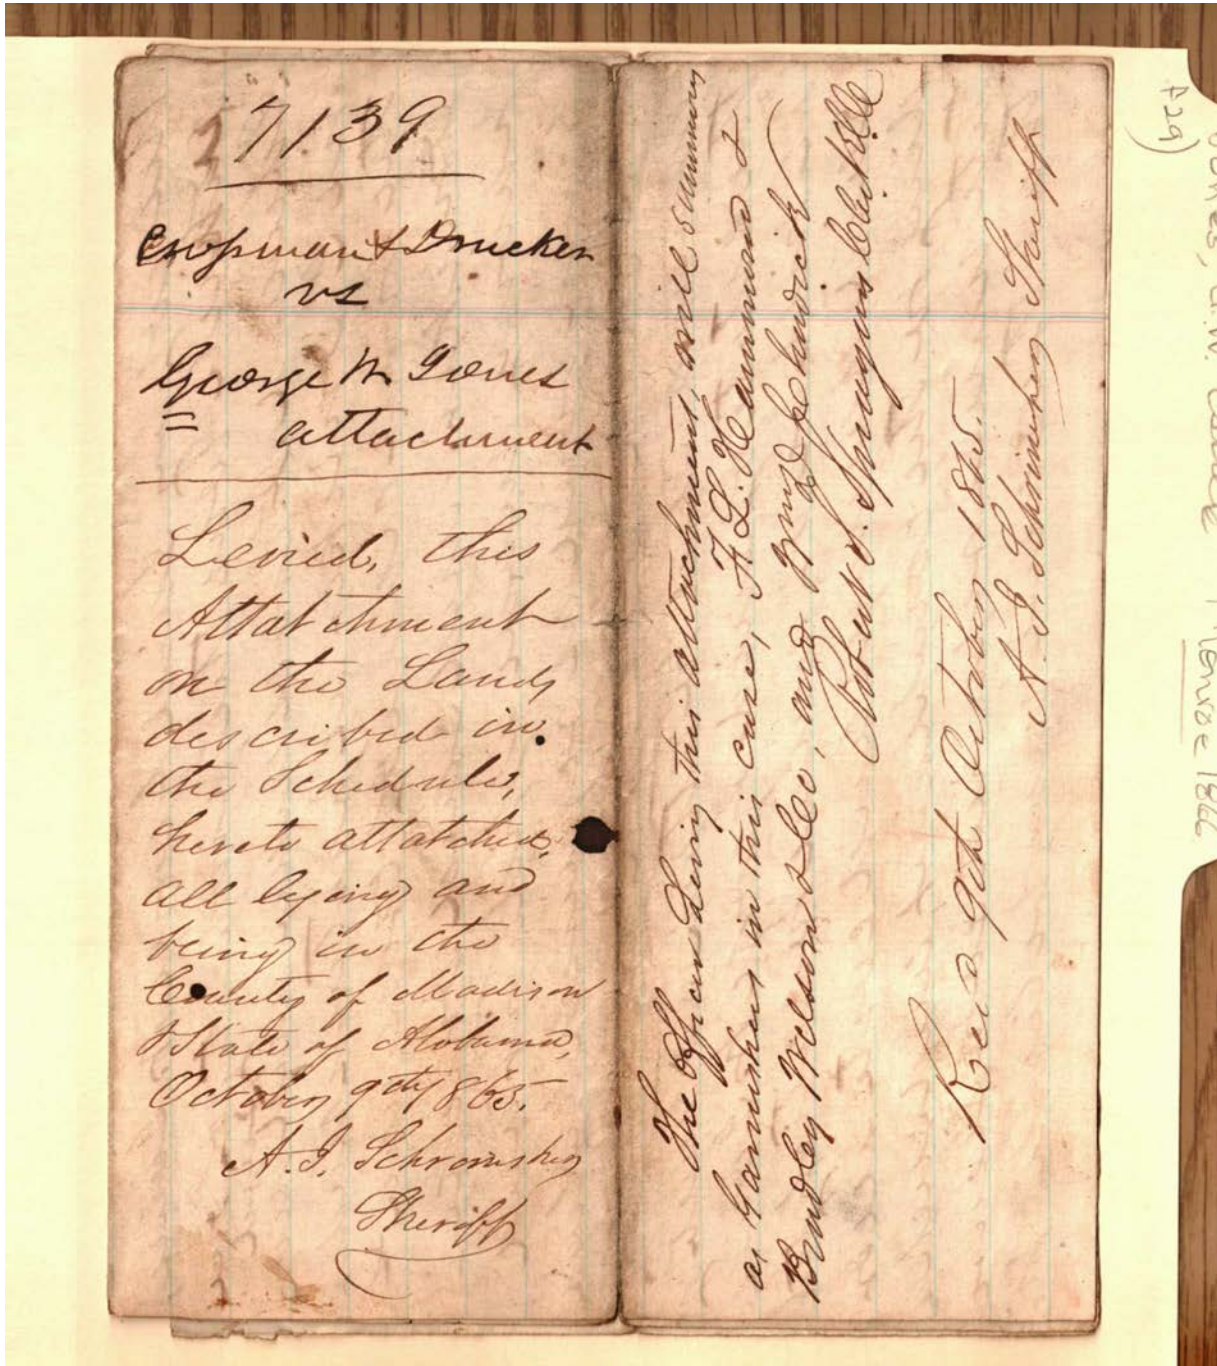 7139
Crossman & Drucker
vs
George W Jones
attachment
Levied, this
Attatchment
on the Lands
described in
the Schedule,
hereto attatched,
all lying and
being in the
County of Madison
& State of Alabama,
October 9th 1865.
A. J.
Sheriff
The officer Leving this attachment, will summons
as Garnishees in this case, F. L. Hammond &
Bradley Wilson & Co, and
Robert S. Spragins Clerk
Recd 9th October 1865.
A. J. Sheriff
Monroe 1866